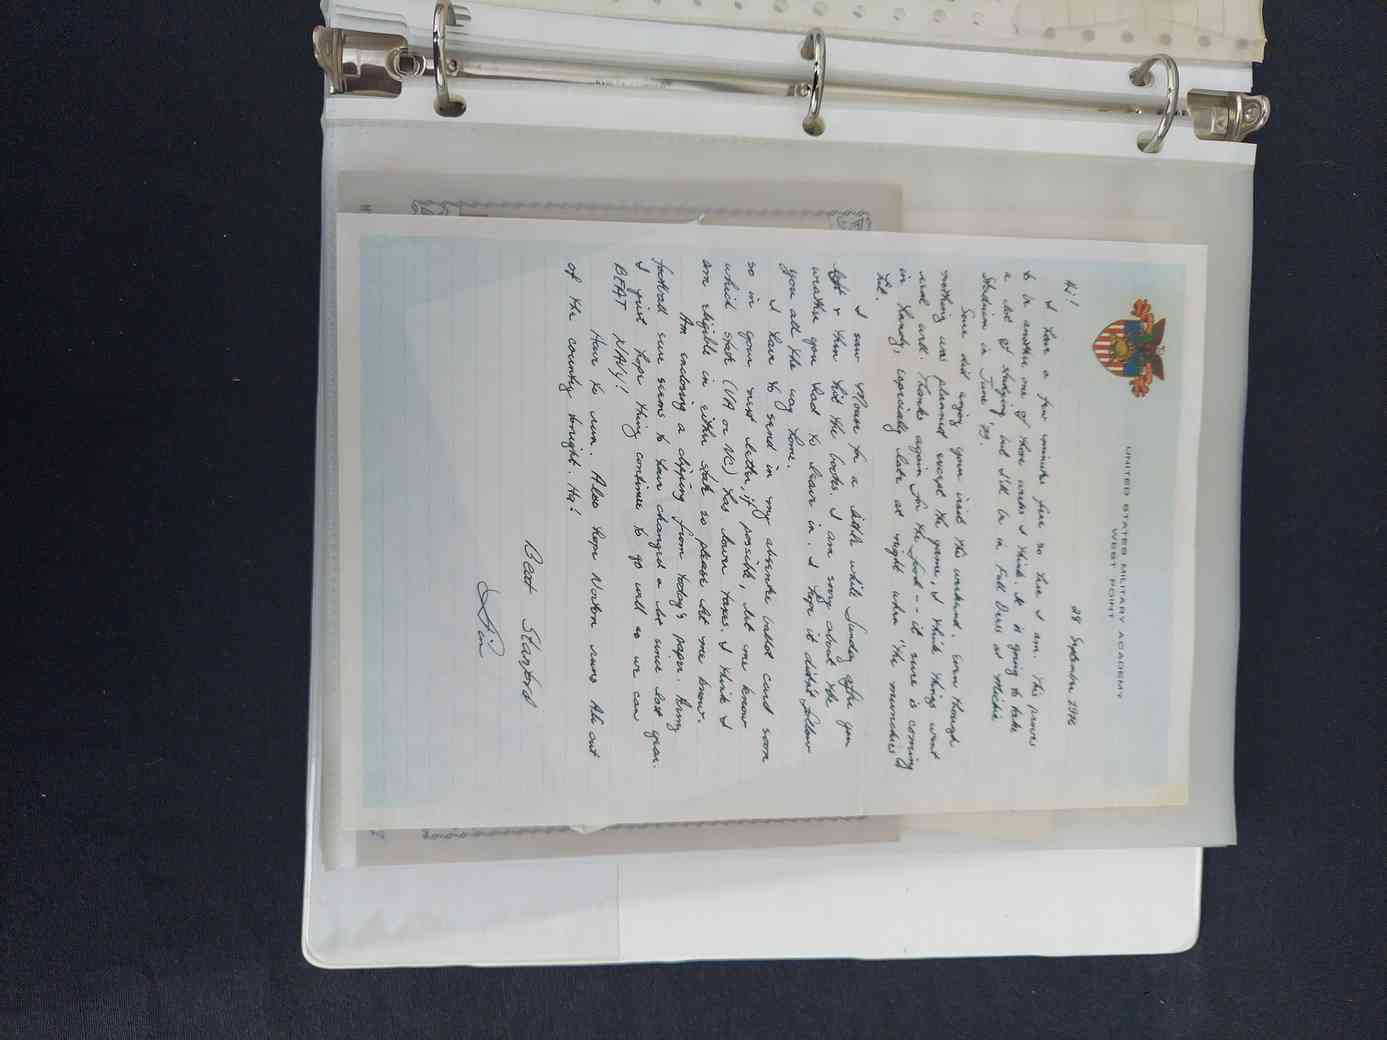 UNITED STATES MILITARY ACADEMY
WEST POINT
28 September 1976
Hi!
I have a few minutes free so here I am. This proves
to be another one of those weeks I think. It is going to take
a lot of studying, but I'll be in Full Dress at Michie
Stadium in June '79.
Sure did enjoy your visit this weekend. Even though
nothing was planned except the game, I think things went
real well. Thanks again for the food -- it sure is coming
in handy, especially late at night when "the munchies"
hit.
I saw Mouse for a little while Sunday after you
left & then hit the books. I am sorry about the
weather you had to leave in. I hope it didn't follow
you all the way home.
I have to send in my absentee ballot card soon
so in your next letter, if possible, let me know
which state (VA or NC) has lower taxes. I think I
am eligible in either state so please let me know.
Am enclosing a clipping from today's paper. Army
football sure seems to have changed a lot since last year.
I just hope things continue to go well so we can
BEAT NAVY!
Have to run. Also hope Norton runs Ali out
of the country tonight! Ha!
Beat Stanford
Jim